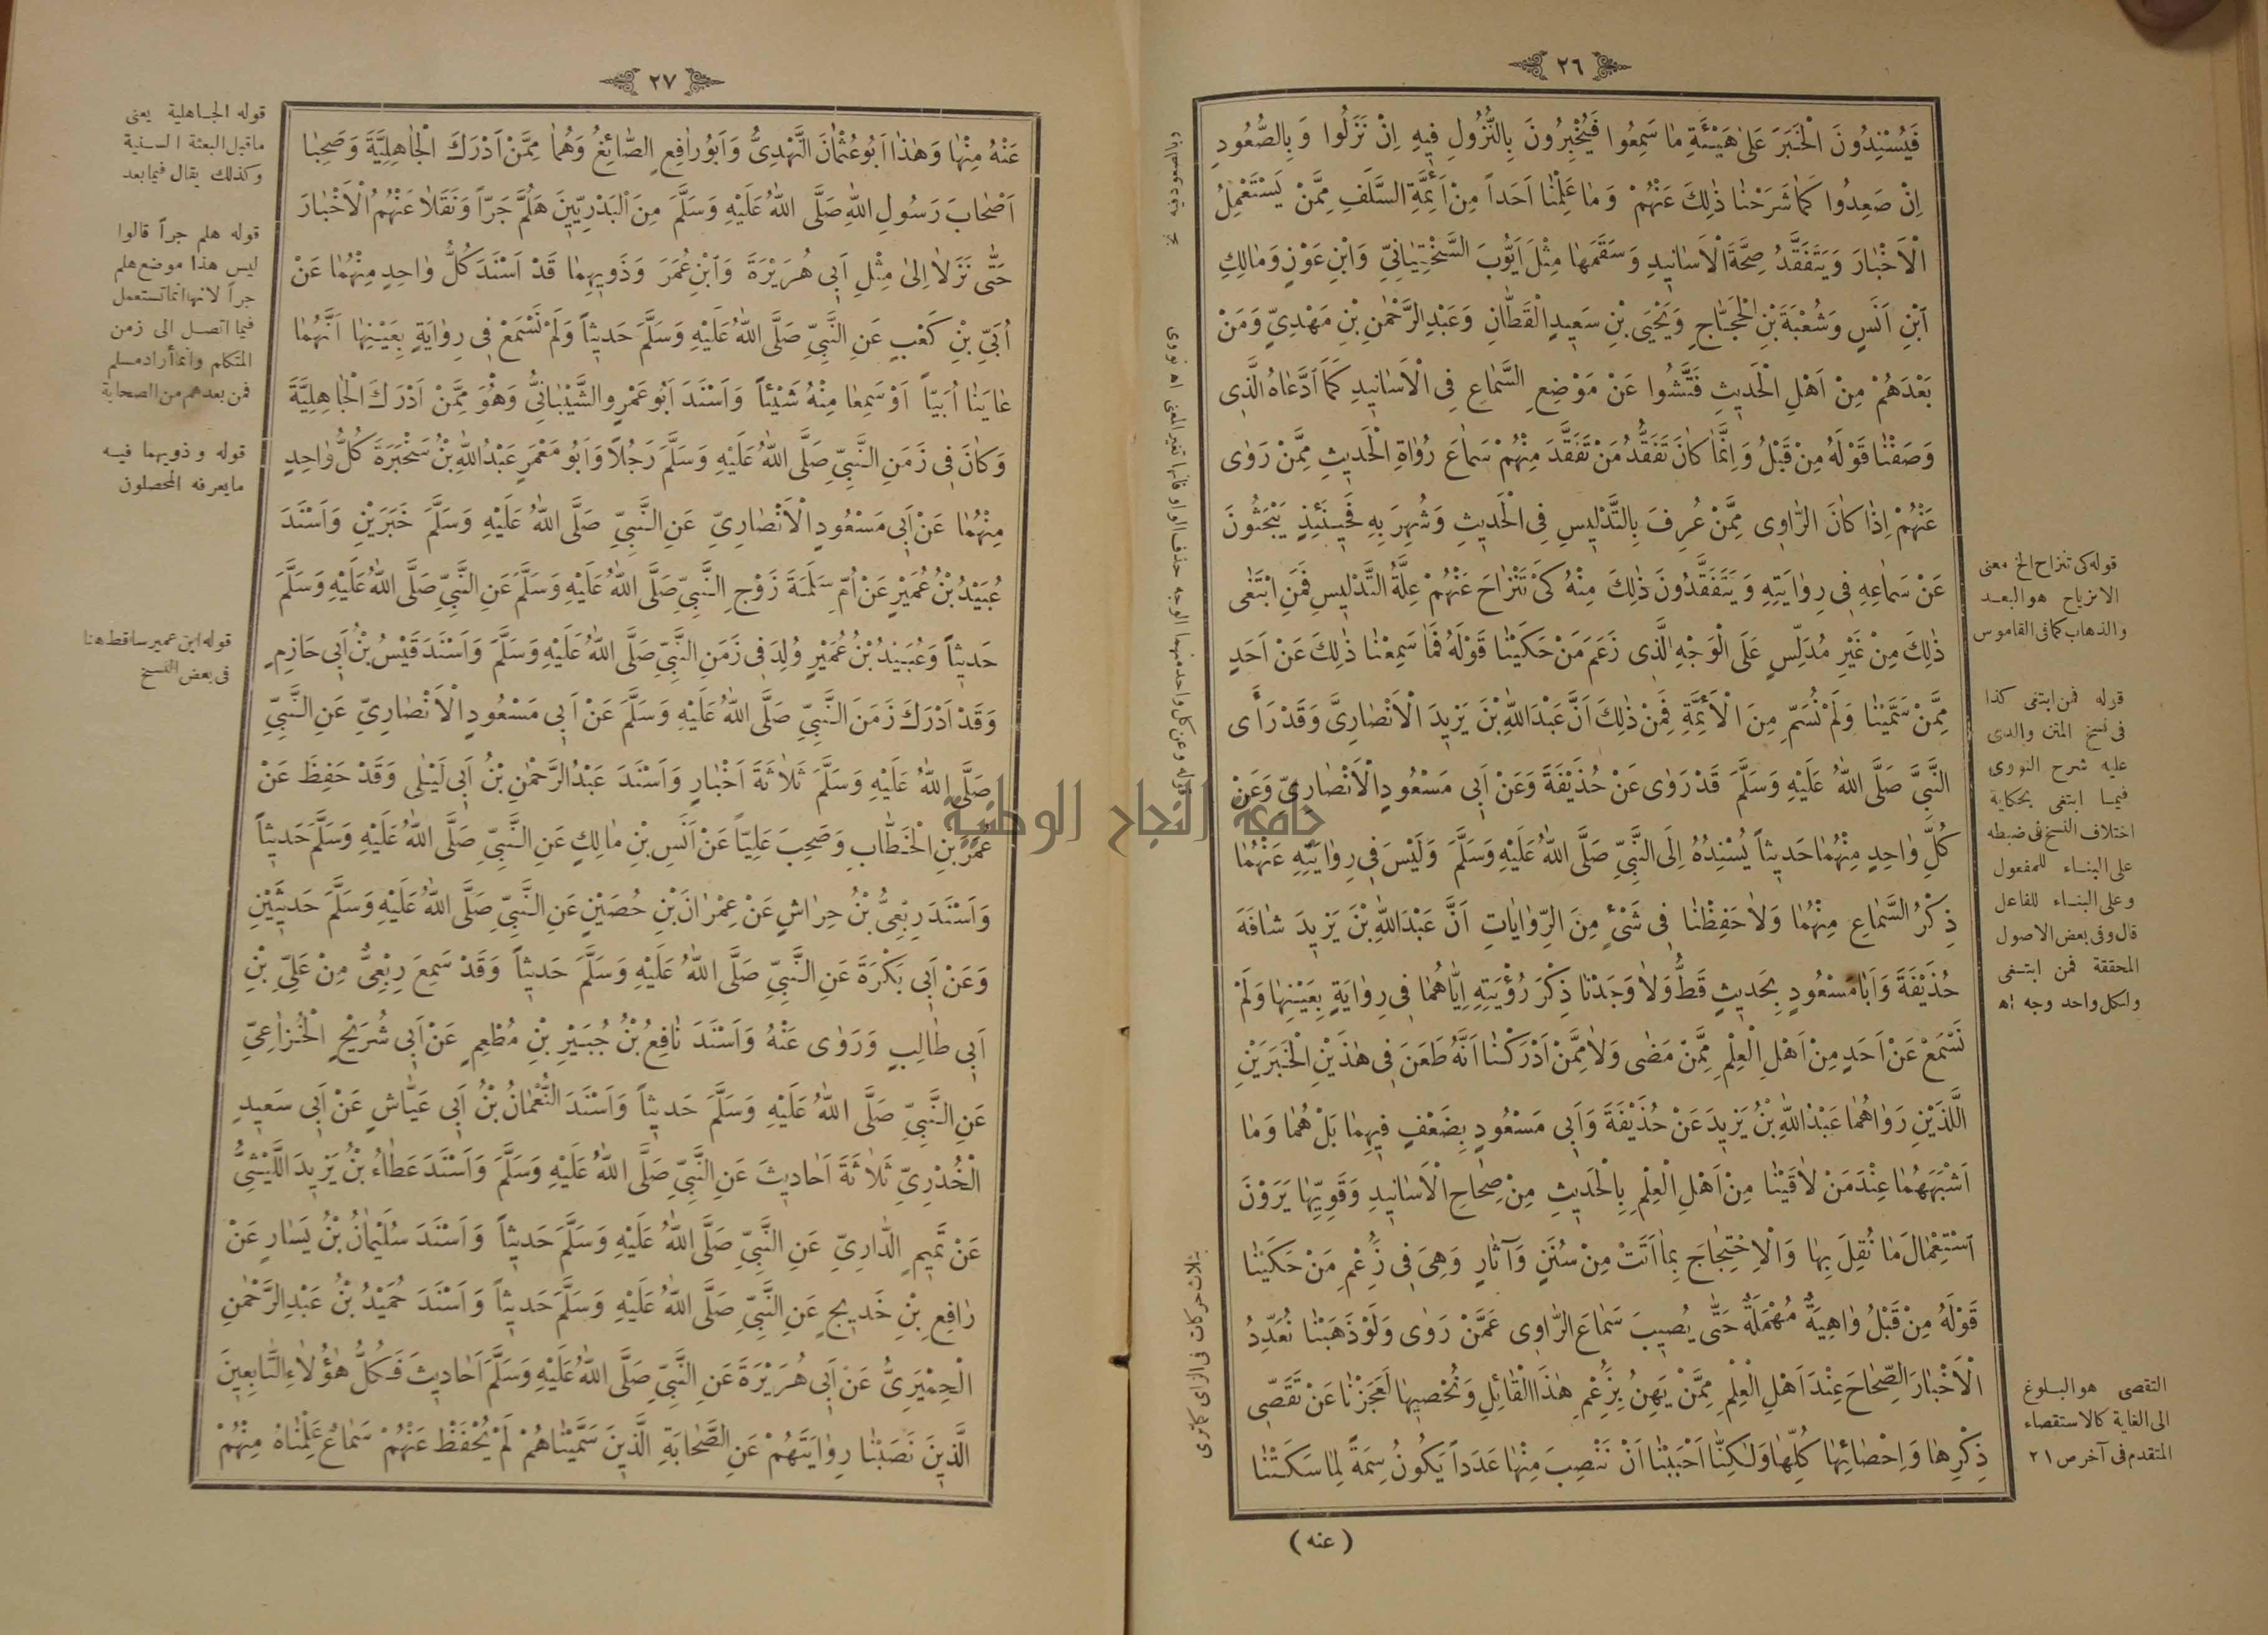 ٢٦
فَيُسْنِدُونَ الْخَبَرَ عَلىٰ هَيْئَةِ مٰا سَمِعُوا فَيُخْبِرُونَ بِالنُّزُولِ فِيهِ اِنْ نَزَلُوا وَبِالصُّعُودِ
اِنْ صَعِدُوا كَمٰا شَرَحْنٰا ذٰلِكَ عَنْهُمْ وَمٰا عَلِمْنٰا اَحَداً مِنْ اَئِمَّةِ السَّلَفِ مِمَّنْ يَسْتَعْمِلُ
الْاَخْبٰارَ وَيَتَفَقَّدُ صِحَّةَ الْاَسٰانِيدِ وَسَقَمَهٰا مِثْلَ اَيُّوبَ السَّخْتِيٰانِيِّ وَابْنِ عَوْنٍ وَمٰالِكِ
ابْنِ اَنَسٍ وَشُعْبَةَ بْنِ الْحَجّٰاجِ وَيَحْيَى بْنِ سَعِيدٍ الْقَطّٰانِ وَعَبْدِ الرَّحْمٰنِ بْنِ مَهْدِيٍّ وَمَنْ
بَعْدَهُمْ مِنْ اَهْلِ الْحَدِيثِ فَتَّشُوا عَنْ مَوْضِعِ السَّمٰاعِ فِى الْاَسٰانِيدِ كَمَا ادَّعٰاهُ الَّذِى
وَصَفْنٰا قَوْلَهُ مِنْ قَبْلُ وَاِنَّمٰا كٰانَ تَفَقُّدُ مَنْ تَفَقَّدَ مِنْهُمْ سَمٰاعَ رُوٰاةِ الْحَدِيثِ مِمَّنْ رَوٰى
عَنْهُمْ اِذٰا كٰانَ الرّٰاوِى مِمَّنْ عُرِفَ بِالتَّدْلِيسِ فِى الْحَدِيثِ وَشُهِرَ بِهِ فَحِينَئِذٍ يَبْحَثُونَ
عَنْ سَمٰاعِهِ فِى رِوٰايَتِهِ وَيَتَفَقَّدُونَ ذٰلِكَ مِنْهُ كَىْ تَنْزٰاحَ عَنْهُمْ عِلَّةُ التَّدْلِيسِ فَمَنِ ابْتَغٰى
ذٰلِكَ مِنْ غَيْرِ مُدَلِّسٍ عَلَى الْوَجْهِ الَّذِى زَعَمَ مَنْ حَكَيْنٰا قَوْلَهُ فَمٰا سَمِعْنٰا ذٰلِكَ عَنْ اَحَدٍ
مِمَّنْ سَمَّيْنٰا وَلَمْ نُسَمِّ مِنَ الْاَئِمَّةِ فَمِنْ ذٰلِكَ اَنَّ عَبْدَ اللهِ بْنَ يَزِيدَ الْاَنْصٰارِىَّ وَقَدْ رَأَى
النَّبِىَّ صَلَّى اللهُ عَلَيْهِ وَسَلَّمَ قَدْ رَوٰى عَنْ حُذَيْفَةَ وَعَنْ اَبِى مَسْعُودٍ الْاَنْصٰارِىِّ وَعَنْ
كُلِّ وٰاحِدٍ مِنْهُمٰا حَدِيثاً يُسْنِدُهُ اِلَى النَّبِىِّ صَلَّى اللهُ عَلَيْهِ وَسَلَّمَ وَلَيْسَ فِى رِوٰايَتِهِ عَنْهُمٰا
ذِكْرُ السَّمٰاعِ مِنْهُمٰا وَلاٰ حَفِظْنٰا فِى شَىْءٍ مِنَ الرِّوٰايٰاتِ اَنَّ عَبْدَ اللهِ بْنَ يَزِيدَ شٰافَهَ
حُذَيْفَةَ وَاَبٰا مَسْعُودٍ بِحَدِيثٍ قَطُّ وَلاٰ وَجَدْنٰا ذِكْرَ رُؤْيَتِهِ اِيّٰاهُمٰا فِى رِوٰايَةٍ بِعَيْنِهٰا وَلَمْ
نَسْمَعْ عَنْ اَحَدٍ مِنْ اَهْلِ الْعِلْمِ مِمَّنْ مَضٰى وَلاٰ مِمَّنْ اَدْرَكْنٰا اَنَّهُ طَعَنَ فِى هٰذَيْنِ الْخَبَرَيْنِ
الَّلذَيْنِ رَوٰاهُمٰا عَبْدُ اللهِ بْنُ يَزِيدَ عَنْ حُذَيْفَةَ وَاَبِى مَسْعُودٍ بِضَعْفٍ فِيهِمٰا بَلْ هُمٰا وَمٰا
اَشْبَهَهُمٰا عِنْدَ مَنْ لاٰقَيْنٰا مِنْ اَهْلِ الْعِلْمِ بِالْحَدِيثِ مِنْ صِحٰاحِ الْاَسٰانِيدِ وَقَوِيِّهٰا يَرَوْنَ
اسْتِعْمٰالَ مٰا نُقِلَ بِهٰا وَالْاِحْتِجٰاجَ بِمٰا اَتَتْ مِنْ سُنَنٍ وَآثٰارٍ وَهِىَ فِى زَعْمِ مَنْ حَكَيْنٰا
قَوْلَهُ مِنْ قَبْلُ وٰاهِيَةٌ مُهْمَلَةٌ حَتّٰى يُصِيبَ سَمٰاعَ الرّٰاوِى عَمَّنْ رَوٰى وَلَوْ ذَهَبْنٰا نُعَدِّدُ
الْاَخْبٰارَ الصِّحٰاحَ عِنْدَ اَهْلِ الْعِلْمِ مِمَّنْ يَهِنُ بِزَعْمِ هٰذَا الْقٰائِلِ وَنُحْصِيهٰا لَعَجَزْنٰا عَنْ تَقَصِّى
ذِكْرِهٰا وَاِحْصٰائِهٰا كُلِّهٰا وَلٰكِنّٰا اَحْبَبْنٰا اَنْ نَنْصِبَ مِنْهٰا عَدَداً يَكُونُ سِمَةً لِمٰا سَكَتْنٰا
(عنه)
قوله كى تنزاح الخ معنى
الانزياح هو البعد
والذهاب كما فى القاموس
قوله فمن ابتغى كذا
فى نسخ المتن والذى
عليه شرح النووى
فيما ابتغى بحكاية
اختلاف النسخ فى ضبطه
على البناء للمفعول
وعلى البناء للفاعل
قال وفى بعض الاصول
المحققة فمن ابتغى
ولكل واحد وجه اه
التقصى هو البلوغ
الى الغاية كالاستقصاء
المتقدم فى آخر ص ٢١
وبالصعود فيه نخ
قوله وعن كل واحد منهما الوجه حذف الواو فانها تغير المعنى اه نووى
بثلاث حركات فى الزاى
٢٧
عَنْهُ مِنْهٰا وَهٰذٰا اَبُو عُثْمٰانَ النَّهْدِىُّ وَاَبُو رٰافِعٍ الصّٰائِغُ وَهُمٰا مِمَّنْ اَدْرَكَ الْجٰاهِلِيَّةَ وَصَحِبٰا
اَصْحٰابَ رَسُولِ اللهِ صَلَّى اللهُ عَلَيْهِ وَسَلَّمَ مِنَ الْبَدْرِيِّينَ هَلُمَّ جَرّاً وَنَقَلاٰ عَنْهُمُ الْاَخْبٰارَ
حَتّٰى نَزَلاٰ اِلىٰ مِثْلِ اَبِى هُرَيْرَةَ وَابْنِ عُمَرَ وَذَوِيهِمٰا قَدْ اَسْنَدَ كُلُّ وٰاحِدٍ مِنْهُمٰا عَنْ
اُبَيِّ بْنِ كَعْبٍ عَنِ النَّبِيِّ صَلَّى اللهُ عَلَيْهِ وَسَلَّمَ حَدِيثاً وَلَمْ نَسْمَعْ فِى رِوٰايَةٍ بِعَيْنِهٰا اَنَّهُمٰا
عٰايَنٰا اُبَيّاً اَوْ سَمِعٰا مِنْهُ شَيْئاً وَاَسْنَدَ اَبُو عَمْرٍو الشَّيْبٰانِىُّ وَهُوَ مِمَّنْ اَدْرَكَ الْجٰاهِلِيَّةَ
وَكٰانَ فِى زَمَنِ النَّبِىِّ صَلَّى اللهُ عَلَيْهِ وَسَلَّمَ رَجُلاً وَاَبُو مَعْمَرٍ عَبْدُ اللهِ بْنُ سَخْبَرَةَ كُلُّ وٰاحِدٍ
مِنْهُمٰا عَنْ اَبِى مَسْعُودٍ الْاَنْصٰارِىِّ عَنِ النَّبِىِّ صَلَّى اللهُ عَلَيْهِ وَسَلَّمَ خَبَرَيْنِ وَاَسْنَدَ
عُبَيْدُ بْنُ عُمَيْرٍ عَنْ اُمِّ سَلَمَةَ زَوْجِ النَّبِىِّ صَلَّى اللهُ عَلَيْهِ وَسَلَّمَ عَنِ النَّبِىِّ صَلَّى اللهُ عَلَيْهِ وَسَلَّمَ
حَدِيثاً وَعُبَيْدُ بْنُ عُمَيْرٍ وُلِدَ فِى زَمَنِ النَّبِىِّ صَلَّى اللهُ عَلَيْهِ وَسَلَّمَ وَاَسْنَدَ قَيْسُ بْنُ اَبِى حَازِمٍ
وَقَدْ اَدْرَكَ زَمَنَ النَّبِىِّ صَلَّى اللهُ عَلَيْهِ وَسَلَّمَ عَنْ اَبِى مَسْعُودٍ الْاَنْصٰارِىِّ عَنِ النَّبِىِّ
صَلَّى اللهُ عَلَيْهِ وَسَلَّمَ ثَلاٰثَةَ اَخْبٰارٍ وَاَسْنَدَ عَبْدُ الرَّحْمٰنِ بْنُ اَبِى لَيْلٰى وَقَدْ حَفِظَ عَنْ
عُمَرَ بْنِ الْخَطّٰابِ وَصَحِبَ عَلِيّاً عَنْ اَنَسِ بْنِ مٰالِكٍ عَنِ النَّبِىِّ صَلَّى اللهُ عَلَيْهِ وَسَلَّمَ حَدِيثاً
وَاَسْنَدَ رِبْعِىُّ بْنُ حِرٰاشٍ عَنْ عِمْرٰانَ بْنِ حُصَيْنٍ عَنِ النَّبِىِّ صَلَّى اللهُ عَلَيْهِ وَسَلَّمَ حَدِيثَيْنِ
وَعَنْ اَبِى بَكْرَةَ عَنِ النَّبِىِّ صَلَّى اللهُ عَلَيْهِ وَسَلَّمَ حَدِيثاً وَقَدْ سَمِعَ رِبْعِىٌّ مِنْ عَلِىِّ بْنِ
اَبِى طٰالِبٍ وَرَوٰى عَنْهُ وَاَسْنَدَ نٰافِعُ بْنُ جُبَيْرِ بْنِ مُطْعِمٍ عَنْ اَبِى شُرَيْحٍ الْخُزٰاعِىِّ
عَنِ النَّبِىِّ صَلَّى اللهُ عَلَيْهِ وَسَلَّمَ حَدِيثاً وَاَسْنَدَ النُّعْمٰانُ بْنُ اَبِى عَيّٰاشٍ عَنْ اَبِى سَعِيدٍ
الْخُدْرِىِّ ثَلاٰثَةَ اَحٰادِيثَ عَنِ النَّبِىِّ صَلَّى اللهُ عَلَيْهِ وَسَلَّمَ وَاَسْنَدَ عَطٰاءُ بْنُ يَزِيدَ اللَّيْثِىُّ
عَنْ تَمِيمٍ الدّٰارِىِّ عَنِ النَّبِىِّ صَلَّى اللهُ عَلَيْهِ وَسَلَّمَ حَدِيثاً وَاَسْنَدَ سُلَيْمٰانُ بْنُ يَسٰارٍ عَنْ
رٰافِعِ بْنِ خَدِيجٍ عَنِ النَّبِىِّ صَلَّى اللهُ عَلَيْهِ وَسَلَّمَ حَدِيثاً وَاَسْنَدَ حُمَيْدُ بْنُ عَبْدِ الرَّحْمٰنِ
الْحِمْيَرِىُّ عَنْ اَبِى هُرَيْرَةَ عَنِ النَّبِىِّ صَلَّى اللهُ عَلَيْهِ وَسَلَّمَ اَحٰادِيثَ فَكُلُّ هٰؤُلاٰءِ التّٰابِعِينَ
الَّذِينَ نَصَبْنٰا رِوٰايَتَهُمْ عَنِ الصَّحٰابَةِ الَّذِينَ سَمَّيْنٰاهُمْ لَمْ يُحْفَظْ عَنْهُمْ سَمٰاعٌ عَلِمْنٰاهُ مِنْهُمْ
قوله الجاهلية يعنى
ماقبل البعثة السنية
وكذلك يقال فيما بعد
قوله هلم جراً قالوا
ليس هذا موضع هلم
جراً لانها انما تستعمل
فيما اتصل الى زمن
المتكلم وانما أراد مسلم
فمن بعدهم من الصحابة
قوله وذويهما فيه
ما يعرفه المحصلون
قوله ابن عمير ساقط هنا
فى بعض النسخ
جامعة النجاح الوطنية